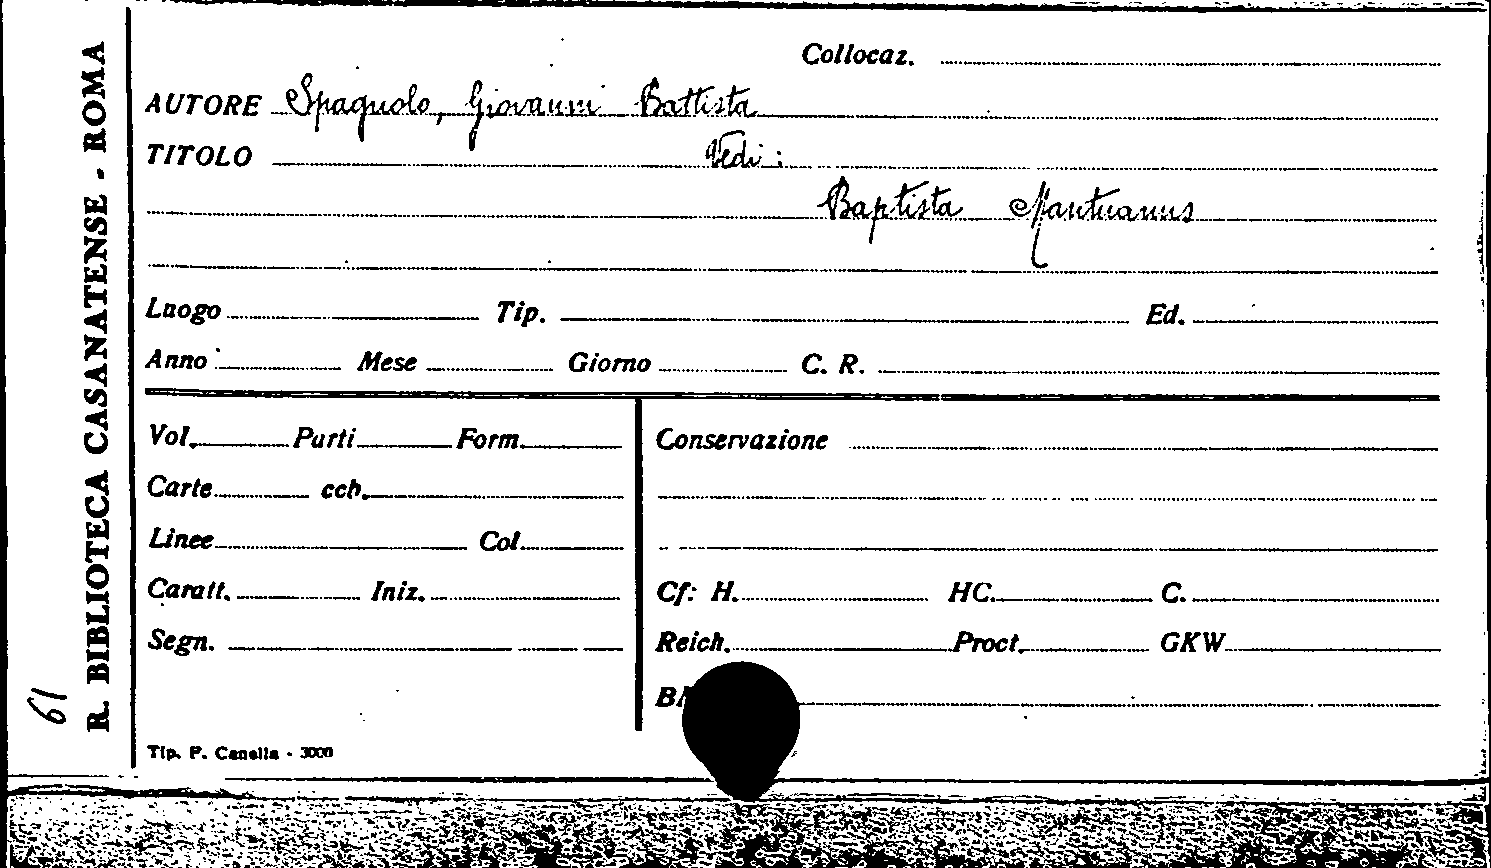 R. BIBLIOTECA CASANATENSE - ROMA
61
Collocaz.
AUTORE Spagnolo, Giovanni Battista
TITOLO Vedi:
Baptista Mantuanus
Luogo Tip. Ed.
Anno Mese Giorno C. R.
Vol. Parti Form.
Carte cch.
Linee Col.
Caratt. Iniz.
Segn.
Conservazione
Cf: H. HC. C.
Reich. Proct. GKW
Tip. P. Canella - 3000